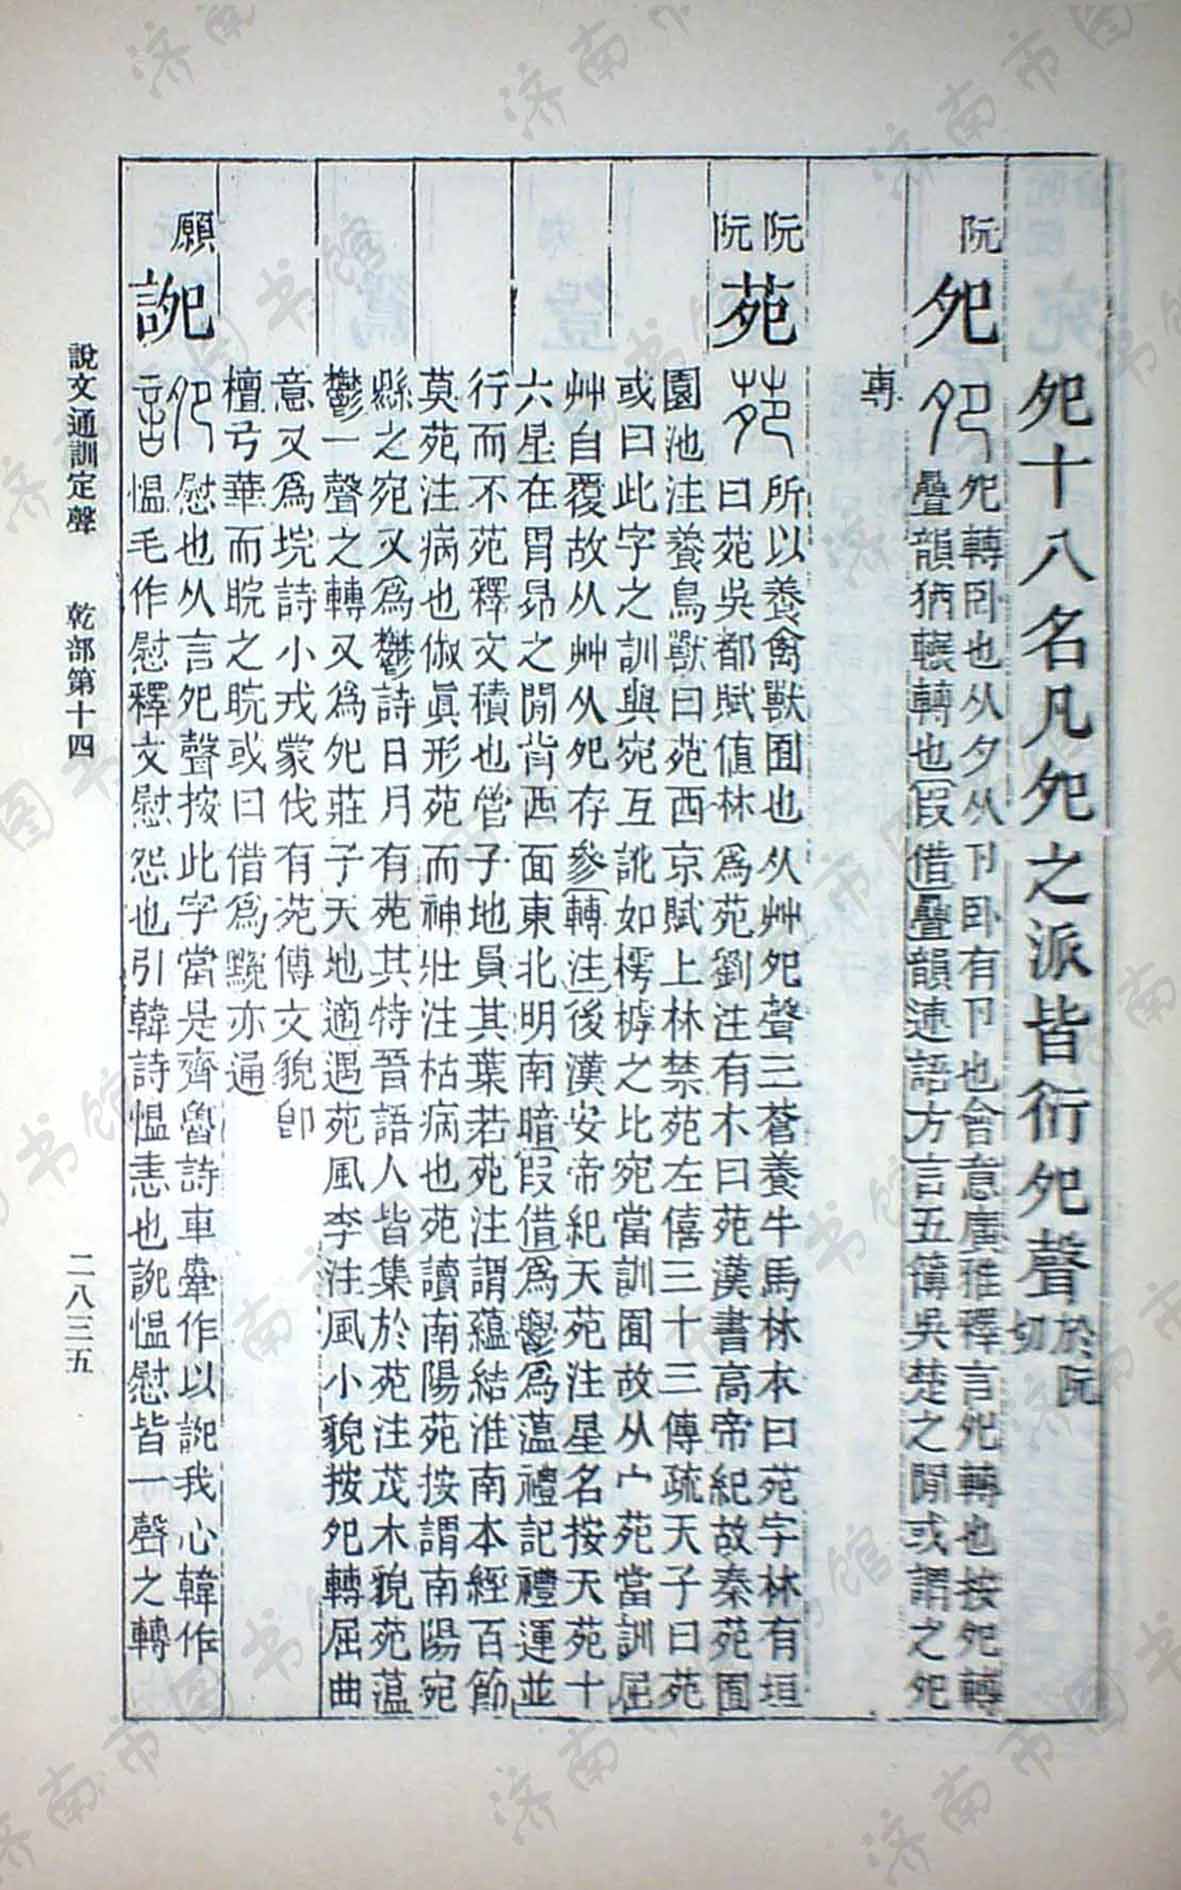 夗十八名凡夗之派皆衍夗聲於阮切
阮
夗
夗轉卧也从夕从卩臥有卩也會意廣雅釋言夗轉也按夗轉
疊韻猶輾轉也〔假借〕疊韻連語方言五簙吳楚之閒或謂之夗
專
阮
阮
苑
所以養禽獸囿也从艸夗聲三蒼養牛馬林木曰苑字林有垣
曰苑吳都賦値林爲苑劉注有木曰苑漢書高帝紀故秦苑囿
園池注養鳥獸曰苑西京賦上林禁苑左僖三十三傳疏天子曰苑
或曰此字之訓與宛互訛如樗樗之比宛當訓囿故从宀苑當訓屈
艸自覆故从艸从夗存參〔轉注〕後漢安帝紀天苑注星名按天苑十
六星在胃昴之閒背西面東北明南暗〔叚借〕爲鬱爲薀禮記禮運並
行而不苑釋文積也管子地員其葉若苑注謂蘊結淮南本經百節
莫苑注病也俶眞形苑而神壯注枯病也苑讀南陽苑按謂南陽宛
縣之宛又爲鬱詩日月有苑其特晉語人皆集於苑注茂木貌苑薀
鬱一聲之轉又爲夗莊子天地適遇苑風李注風小貌按夗轉屈曲
意又爲垸詩小戎蒙伐有苑傳文貌卽
檀弓華而睆之睆或曰借爲䩊亦通
願
詑
慰也从言夗聲按此字當是齊魯詩車舝作以詑我心韓作
愠毛作慰釋文慰怨也引韓詩愠恚也詑愠慰皆一聲之轉
說文通訓定聲 乾部第十四 二八三五